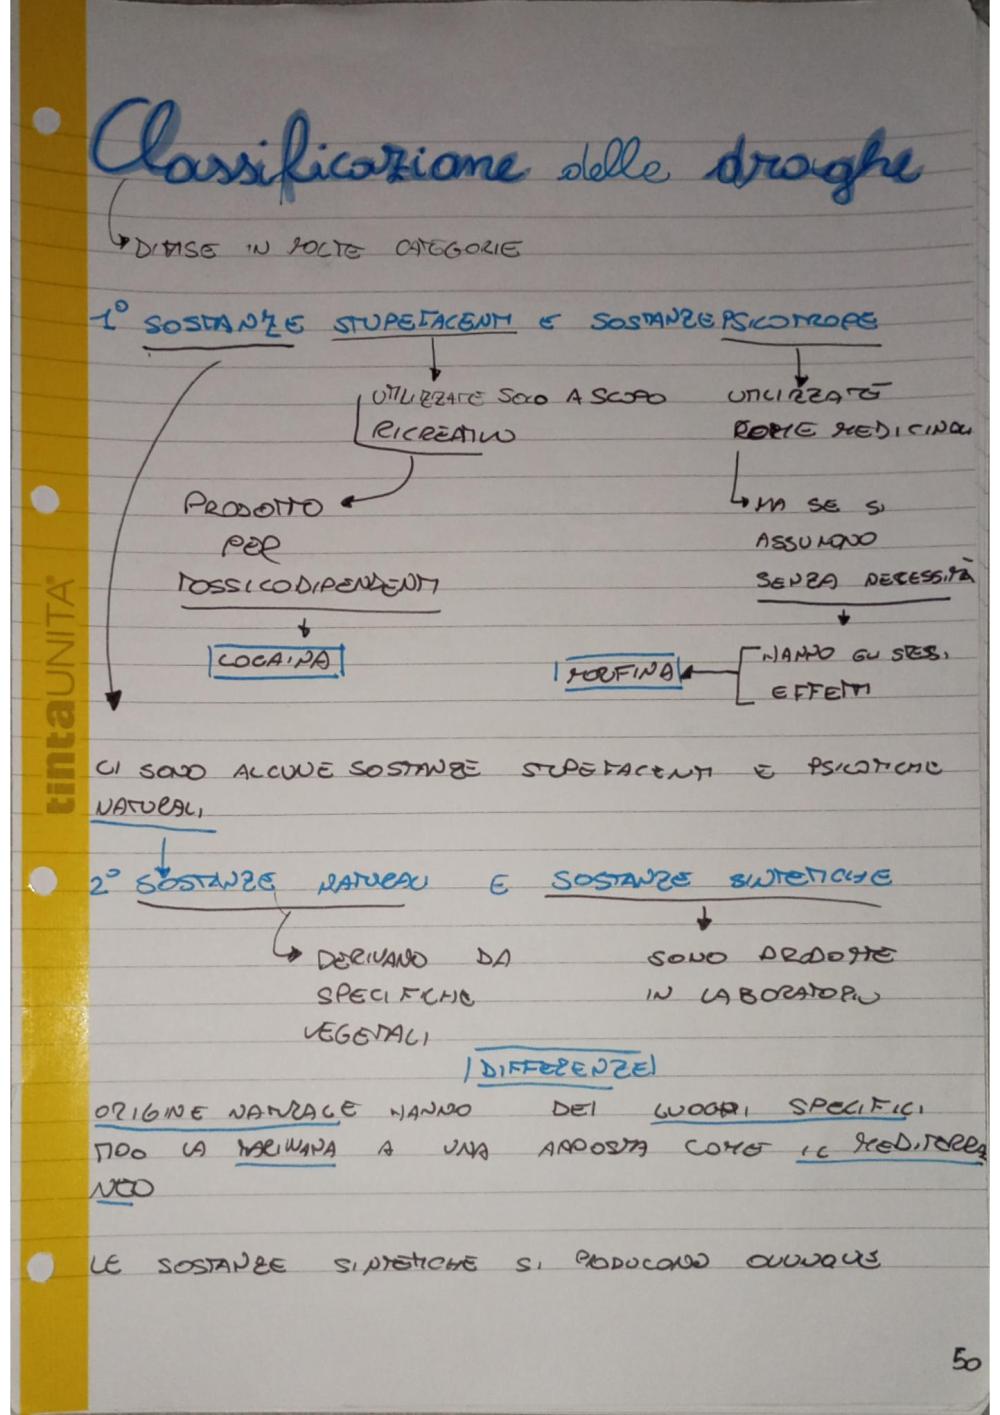 Classificazione delle droghe
DIVISE IN MOLTE CATEGORIE
1° SOSTANZE STUPEFACENTI E SOSTANZE PSICOTROPE
UTILIZZATE SOLO A SCOPO
RICREATIVO
UTILIZZATE
COME MEDICINALI
PRODOTTO
PER
TOSSICODIPENDENTI
COCAINA
MA SE SI
ASSUMONO
SENZA NECESSITÀ
HANNO GLI STESSI
EFFETTI
MORFINA
tintaUNITA
CI SONO ALCUNE SOSTANZE STUPEFACENTI E PSICOTICHE
NATURALI
2° SOSTANZE NATURALI E SOSTANZE SINTETICHE
DERIVANO DA
SPECIFICHE
VEGETALI
SONO PRODOTTE
IN LABORATORIO
DIFFERENZE
ORIGINE NATURALE HANNO DEI LUOGHI SPECIFICI
TIPO LA MARIJUANA A UNA APPOSTA COME IL MEDITERRA
NEO
LE SOSTANZE SINTETICHE SI PRODUCONO OVUNQUE
50